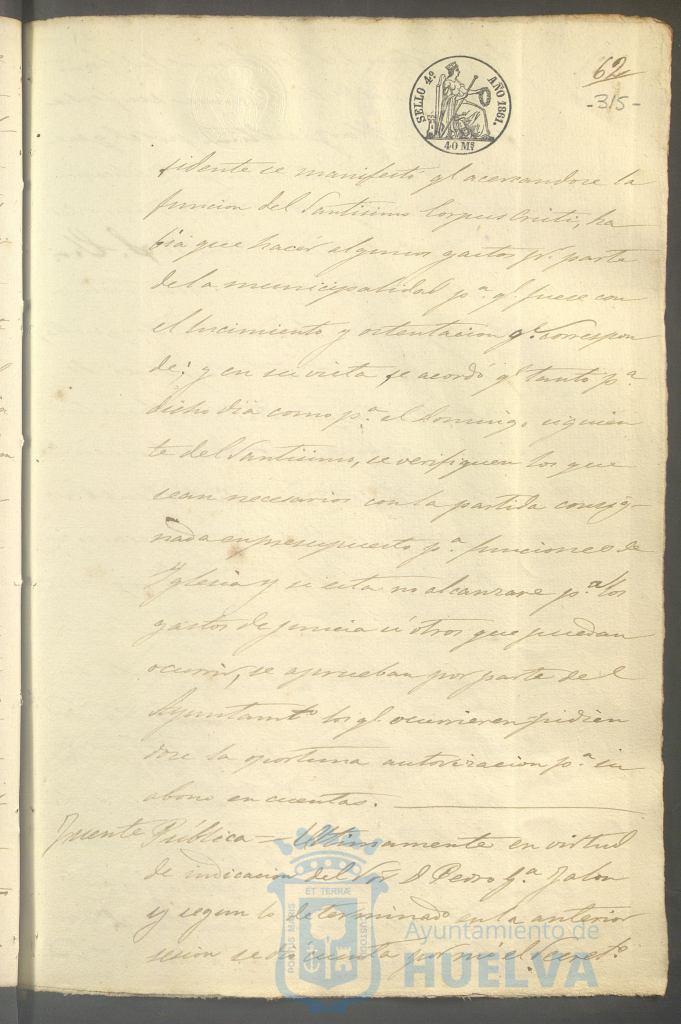 SELLO 4º AÑO 1861.
40 Mˢ
62
-315-
sidente se manifestó q.l acercandose la
funcion del Santisimo Corpus Cristi, ha
bia que hacer algunos gastos p.r parte
de la municipalidad p.ª q.l fuese con
el lucimiento y ostentacion q.e correspon
de; y en su vista se acordó q.l tanto p.ª
dicho dia como p.ª el Domingo siguien
te del Santisimo, se verifiquen los que
sean necesarios con la partida consig-
nada en presupuesto p.ª funciones de
Yglesia y si esta no alcanzare p.ª los
gastos de ú otros que puedan
ocurrir, se aprueban por parte del
Ayuntamt.o los q.l ocurrieren pidien
dose la oportuna autorizacion p.ª su
abono en cuentas.
Fuente Pública = Ultimamente en virtud
de indicacion del Sor. D Pedro G.ª Jalon
y segun lo determinado en la anterior
sesion se dio cuenta por mi el Secret.o
PORTUS MARIS ET TERRÆ CUSTODIA
Ayuntamiento de
HUELVA